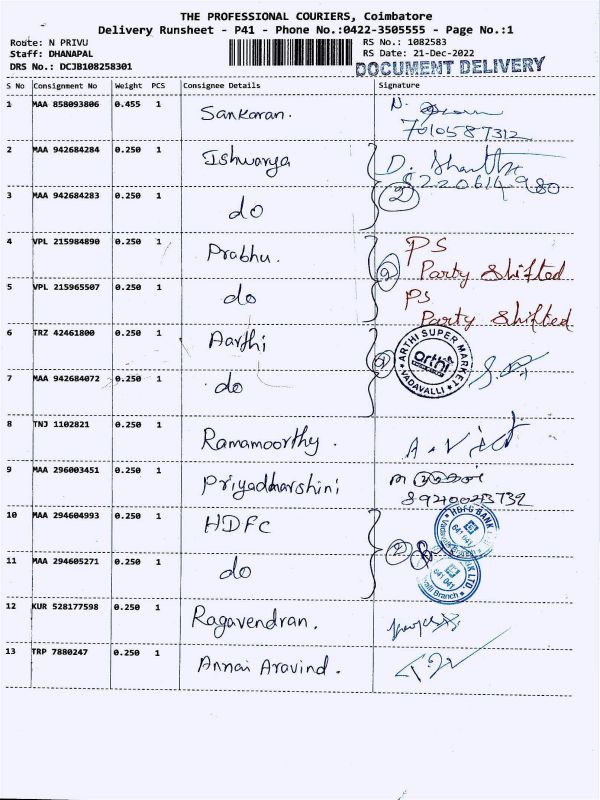 THE PROFESSIONAL COURIERS, Coimbatore
Delivery Runsheet - P41 - Phone No.:0422-3505555 - Page No.:1
Route: N PRIVU
RS No.: 1082583
Staff: DHANAPAL
RS Date: 21-Dec-2022
DRS No.: DCJB108258301
DOCUMENT DELIVERY
S No Consignment No Weight PCS Consignee Details Signature
1 MAA 858093806 0.455 1 Sankaran. N.
7010587312
2 MAA 942684284 0.250 1 Ishwarya D. Shantha
8220614980
3 MAA 942684283 0.250 1 do 2
4 VPL 215984890 0.250 1 Prabhu. PS
2 Party Shifted
5 VPL 215965507 0.250 1 do PS
Party Shifted
6 TRZ 42461800 0.250 1 Aarthi
ARTHI SUPER MARKET
arthi
VADAVALLI
7 MAA 942684072 0.250 1 do
8 TNJ 1102821 0.250 1 Ramamoorthy.
9 MAA 296003451 0.250 1 Priyadharshini
10 MAA 294604993 0.250 1 HDFC
HDFC BANK LTD
641 041
11 MAA 294605271 0.250 1 do
641 041
Branch
12 KUR 528177598 0.250 1 Ragavendran.
13 TRP 7880247 0.250 1 Annai Aravind.